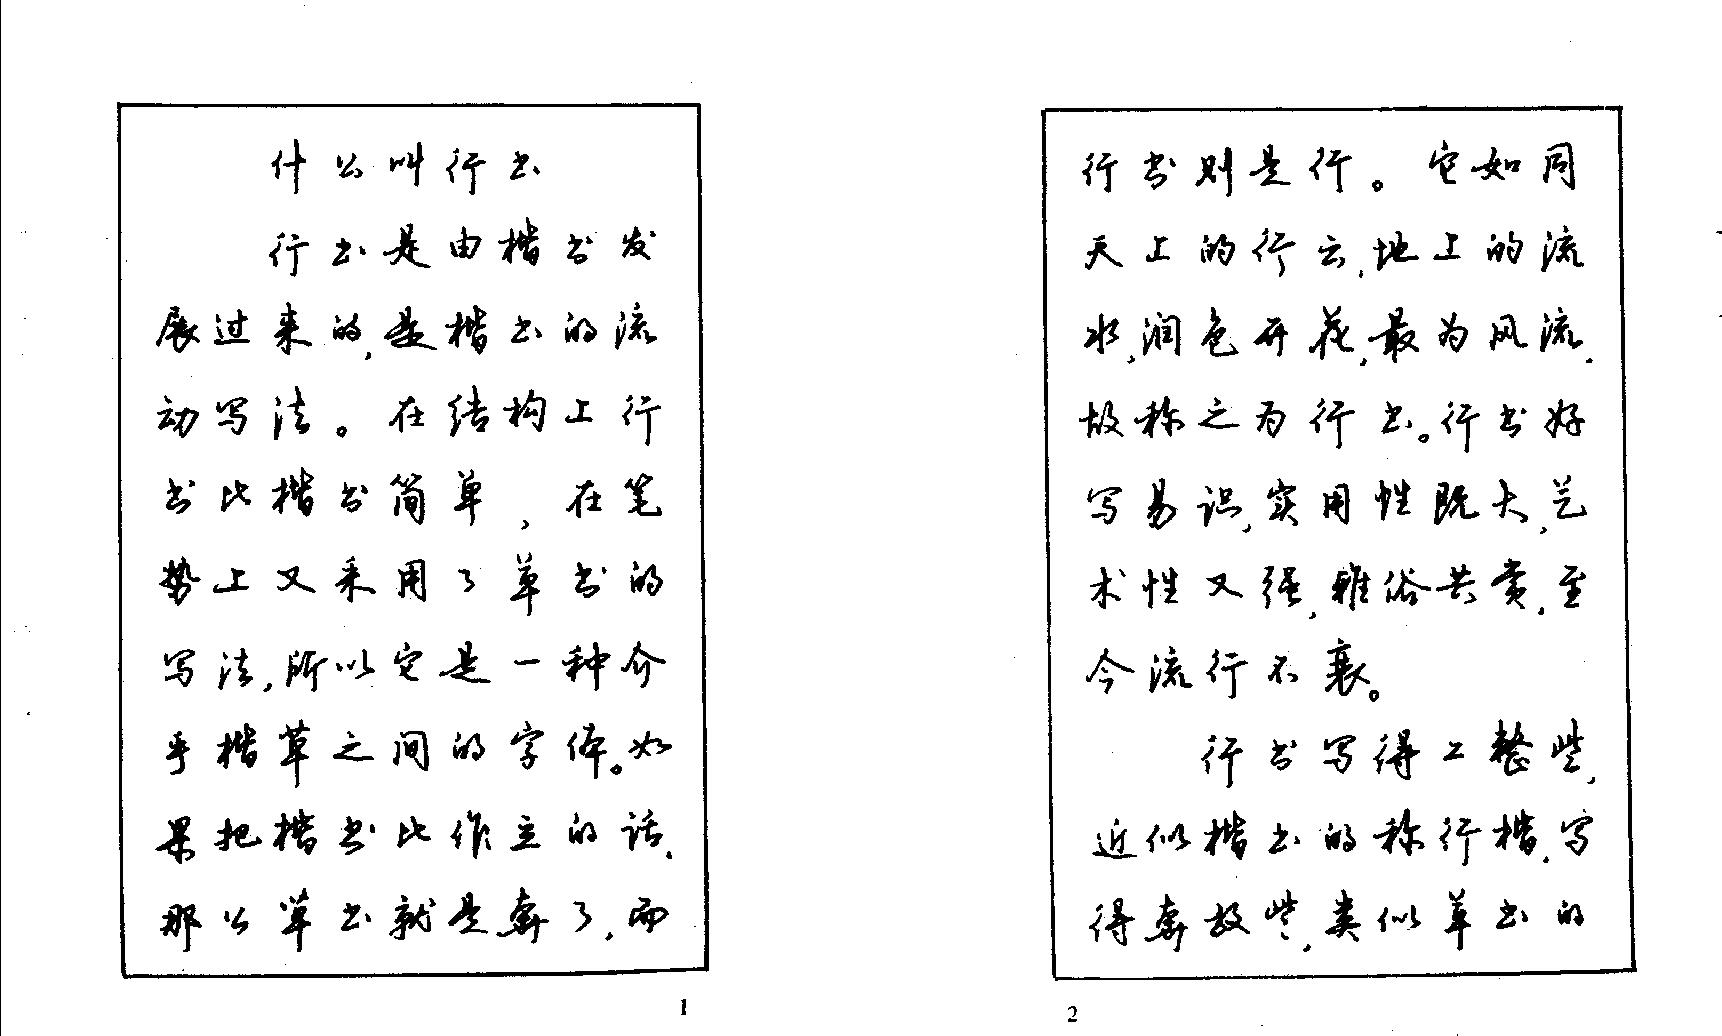 什么叫行书
行书是由楷书发
展过来的,是楷书的流
动写法。在结构上行
书比楷书简单,在笔
势上又采用了草书的
写法,所以它是一种介
乎楷草之间的字体。如
果把楷书比作立的话,
那么草书就是奔了,而
1
行书则是行。它如同
天上的行云,地上的流
水,润色开花,最为风流,
故称之为行书。行书好
写易识,实用性既大,艺
术性又强,雅俗共赏,至
今流行不衰。
行书写得工整些,
近似楷书的称行楷,写
得奔放些,类似草书的
2